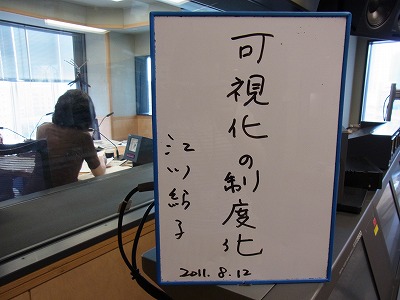 可視化の制度化
江川紹子
2011.8.12